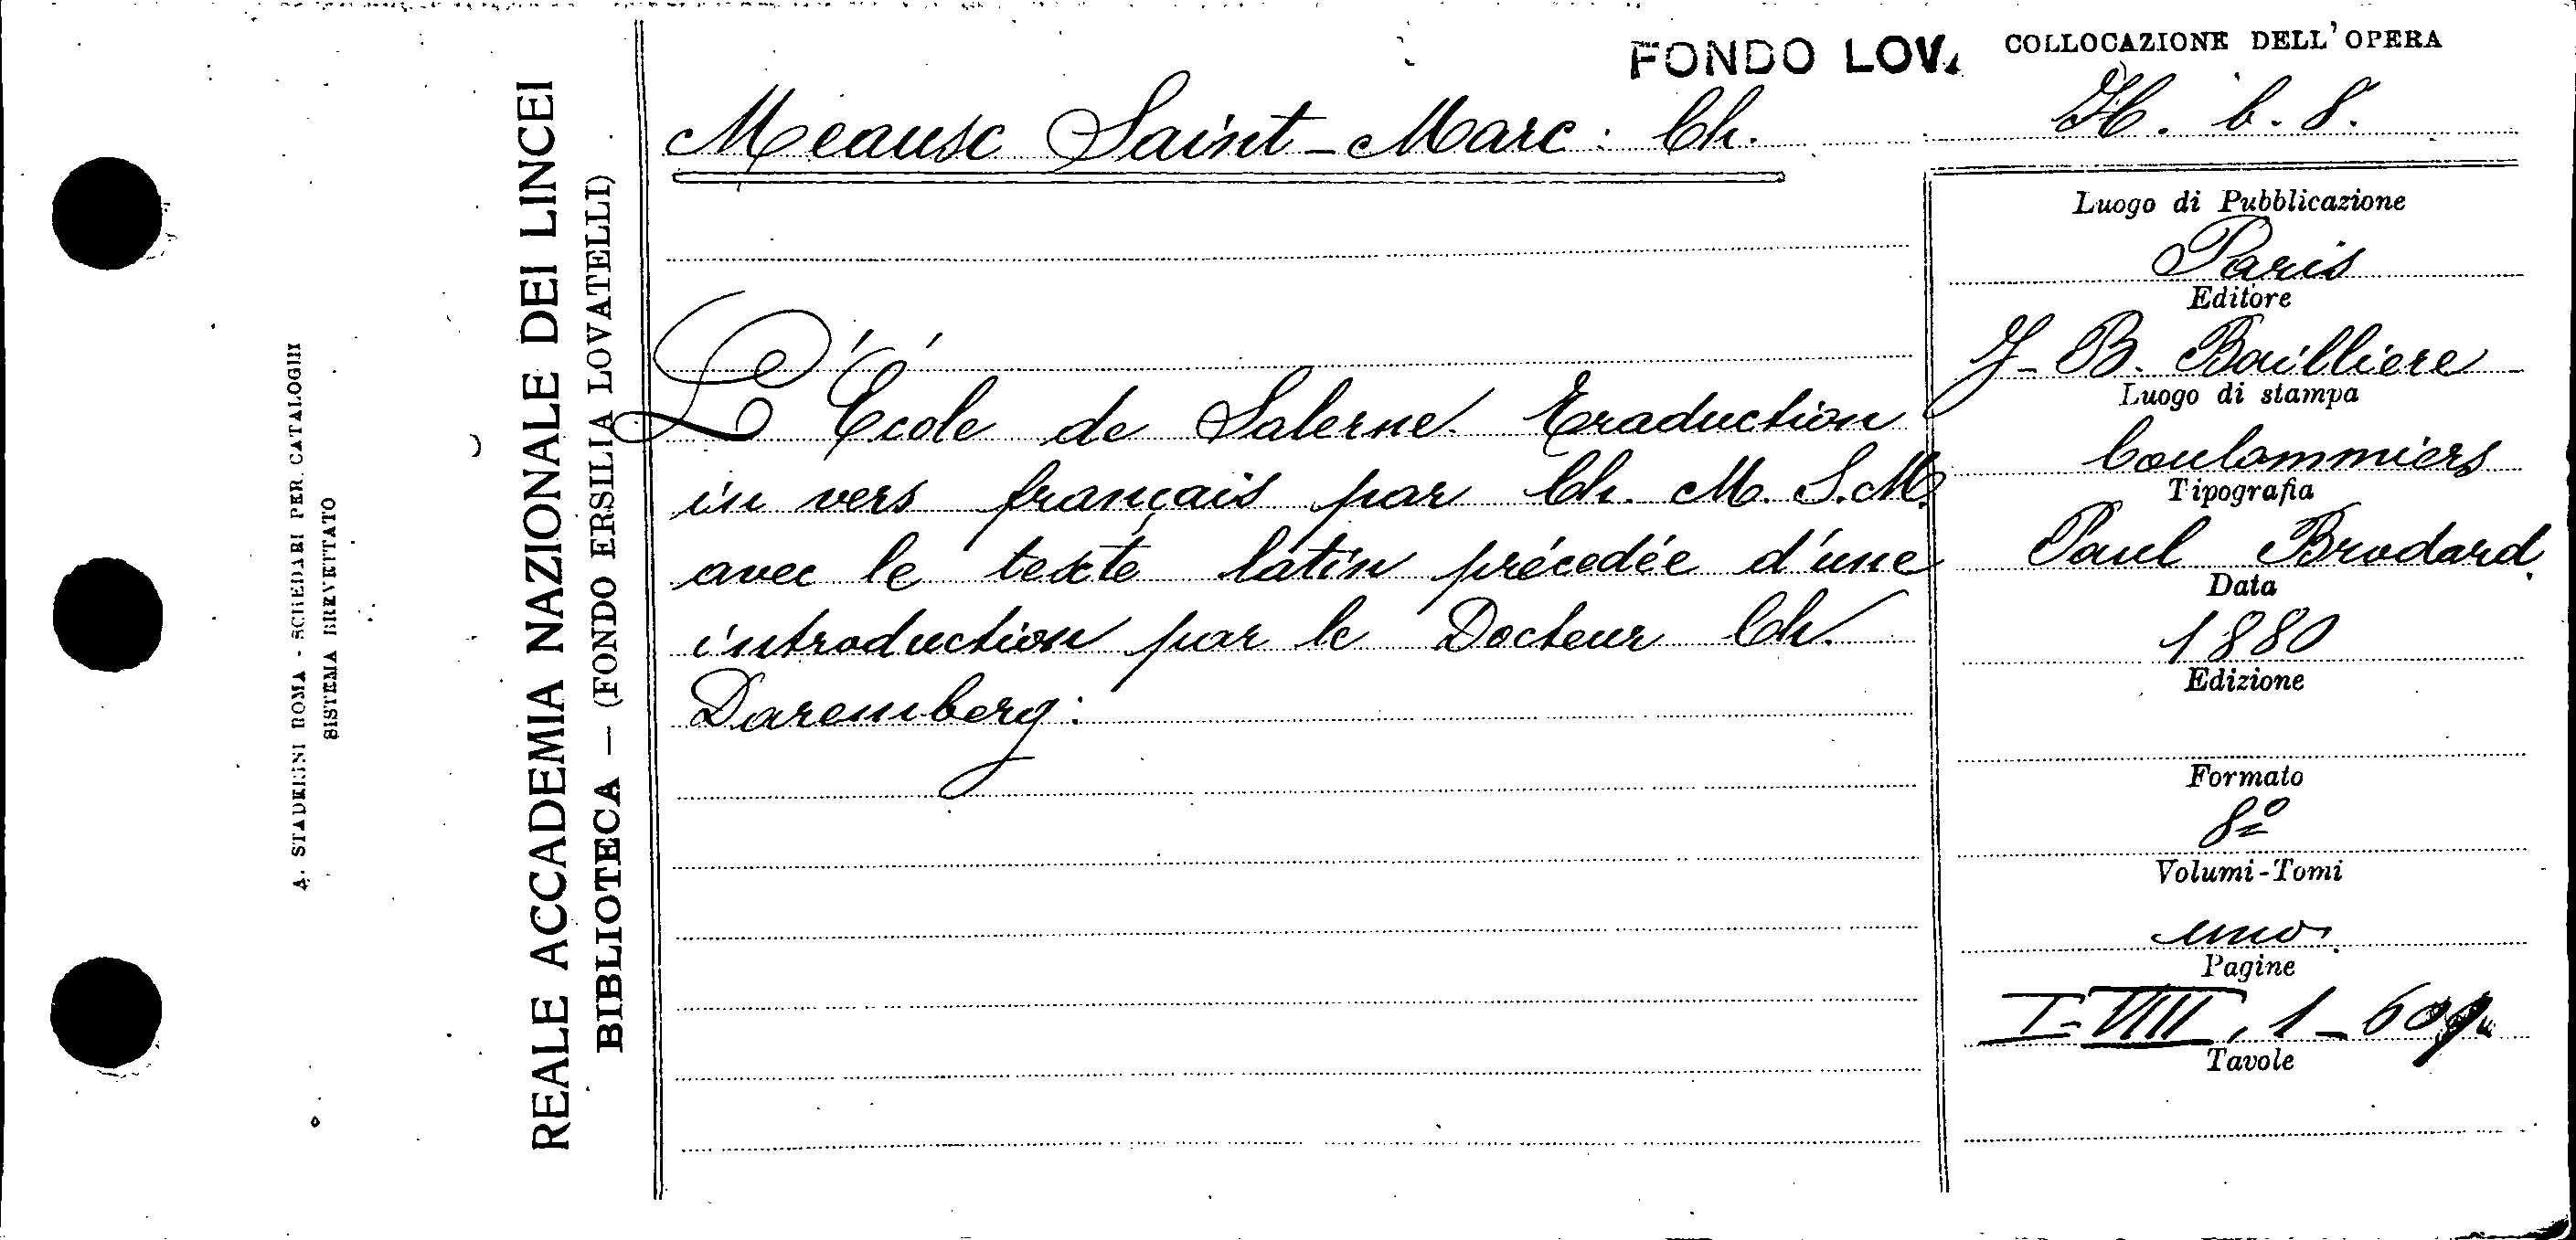 A. STADERINI ROMA - SCHEDARI PER CATALOGHI
SISTEMA BREVETTATO
REALE ACCADEMIA NAZIONALE DEI LINCEI
BIBLIOTECA — (FONDO ERSILIA LOVATELLI)
FONDO LOV.
Meausc Saint-Marc: Ch.
L'École de Salerne. Traduction
in vers français par Ch. M. S.M.
avec le texte latin précedée d'une
introduction par le Docteur Ch.
Daremberg:
COLLOCAZIONE DELL'OPERA
H. b. 8.
Luogo di Pubblicazione
Paris
Editore
J-B. Bailliere
Luogo di stampa
Coulommiers
Tipografia
Paul Brodard.
Data
1880
Edizione
Formato
8º
Volumi-Tomi
uno.
Pagine
I-VIII, 1-609
Tavole